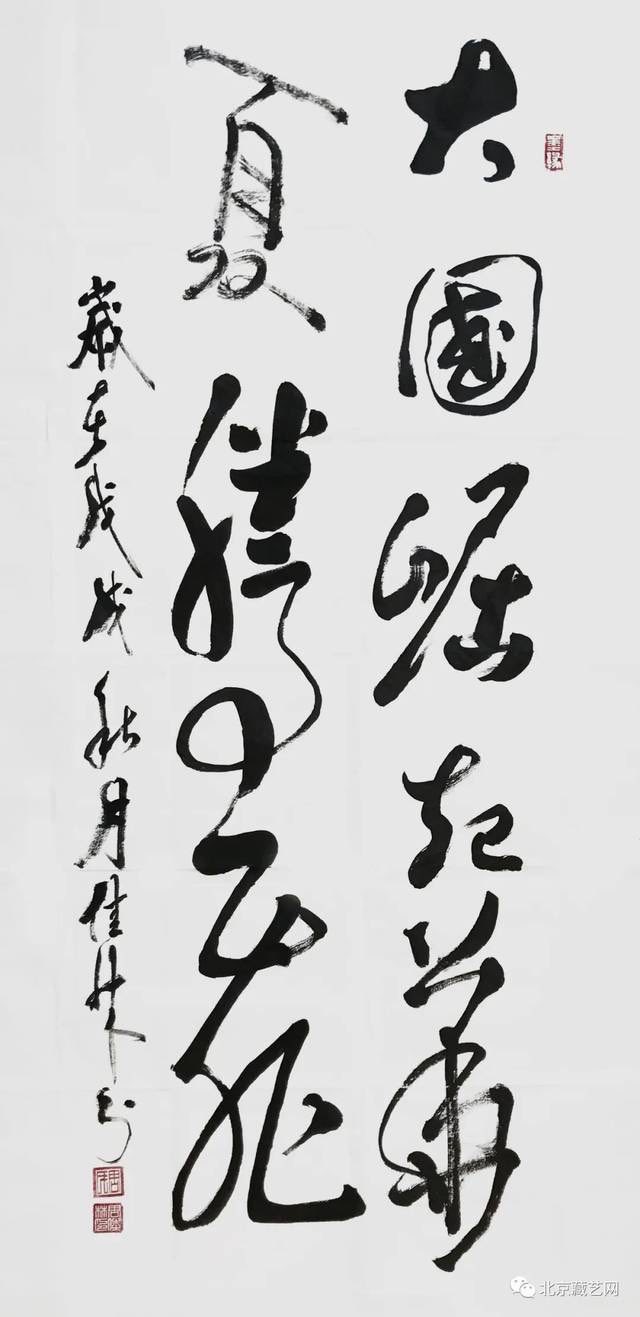 大國崛起華
夏騰飛
歲在戊戌秋月佳林書
北京藏艺网